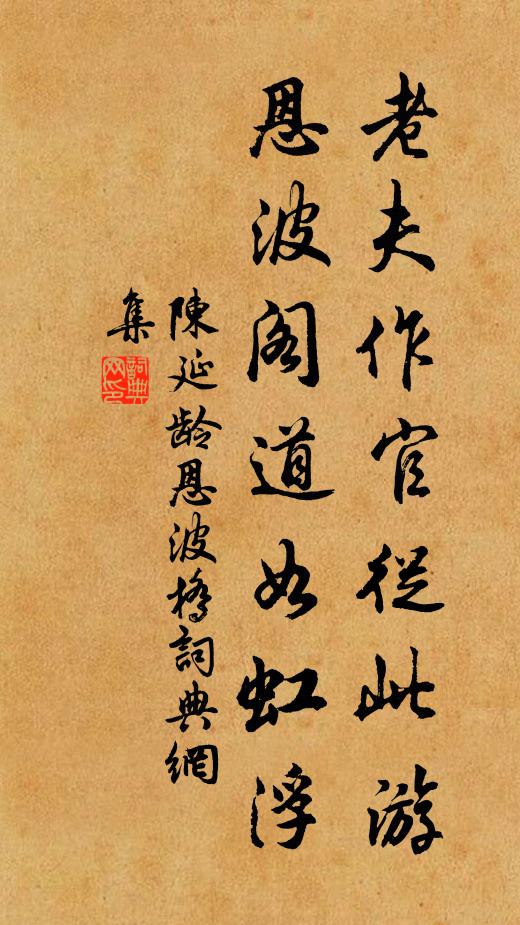 老夫作官從此游
恩波阁道如虹浮
陳延龄恩波橋詞典網
集
詞典网印